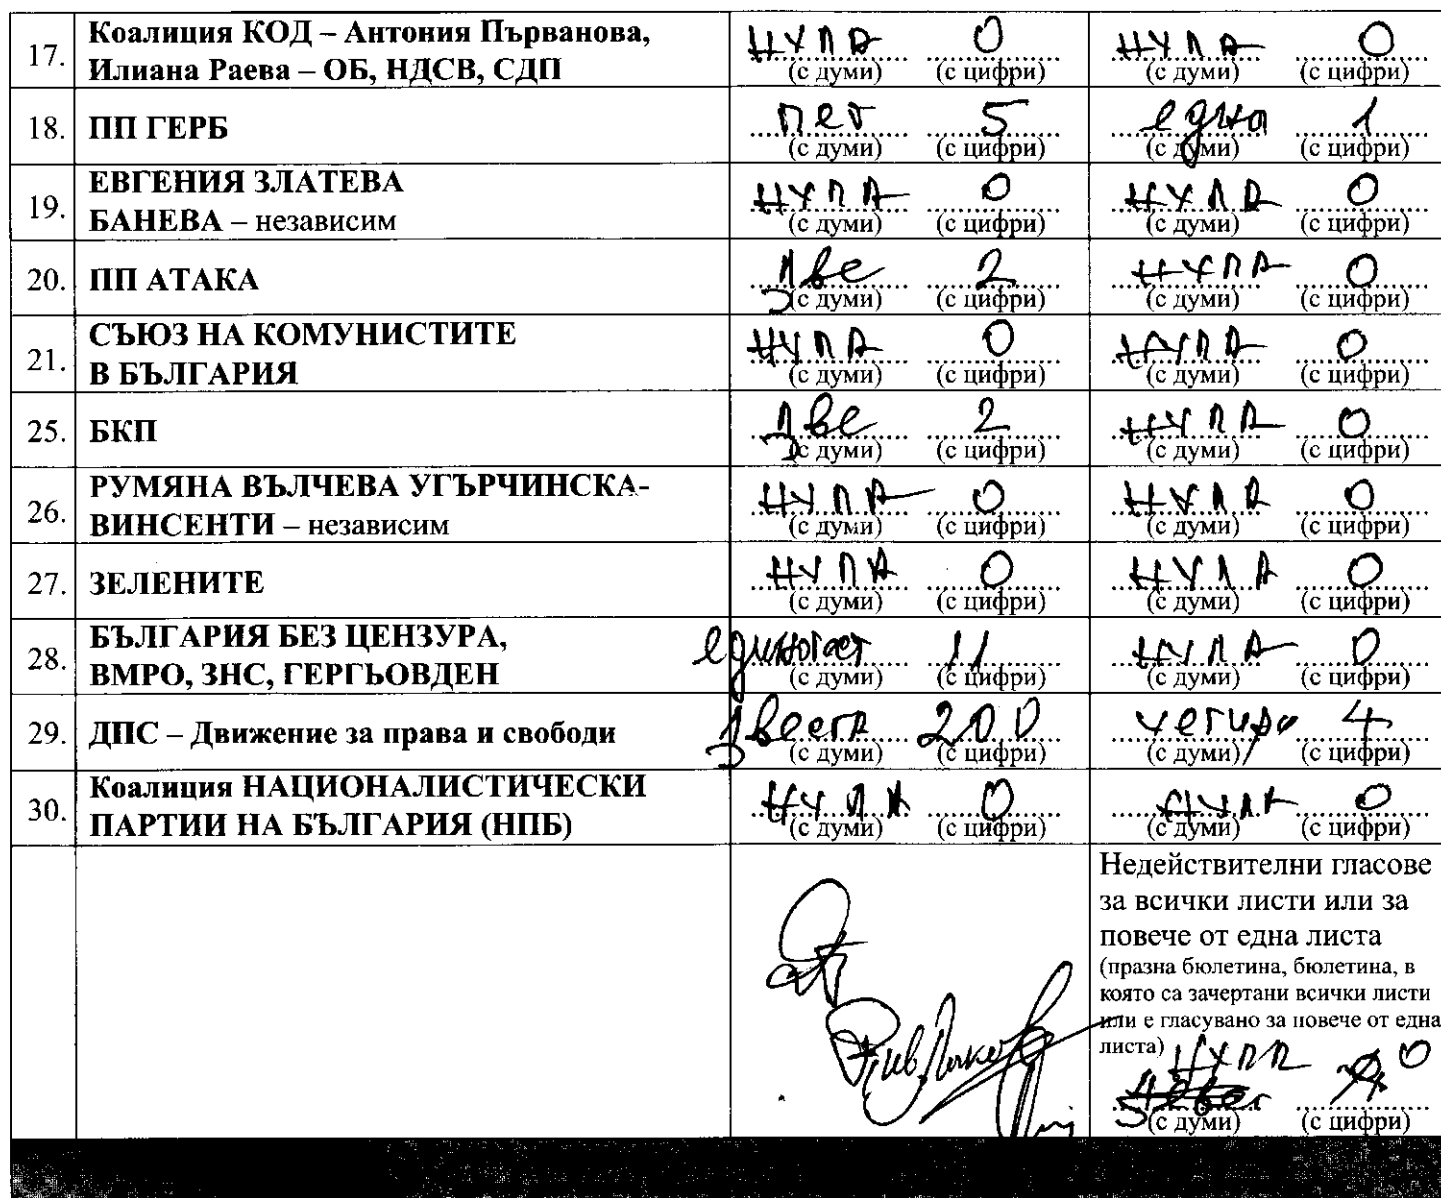 17. Коалиция КОД – Антония Първанова, Илиана Раева – ОБ, НДСВ, СДП нула 0 нула 0
(с думи) (с цифри) (с думи) (с цифри)
18. ПП ГЕРБ пет 5 една 1
(с думи) (с цифри) (с думи) (с цифри)
19. ЕВГЕНИЯ ЗЛАТЕВА БАНЕВА – независим нула 0 нула 0
(с думи) (с цифри) (с думи) (с цифри)
20. ПП АТАКА две 2 нула 0
(с думи) (с цифри) (с думи) (с цифри)
21. СЪЮЗ НА КОМУНИСТИТЕ В БЪЛГАРИЯ нула 0 нула 0
(с думи) (с цифри) (с думи) (с цифри)
25. БКП две 2 нула 0
(с думи) (с цифри) (с думи) (с цифри)
26. РУМЯНА ВЪЛЧЕВА УГЪРЧИНСКА-ВИНСЕНТИ – независим нула 0 нула 0
(с думи) (с цифри) (с думи) (с цифри)
27. ЗЕЛЕНИТЕ нула 0 нула 0
(с думи) (с цифри) (с думи) (с цифри)
28. БЪЛГАРИЯ БЕЗ ЦЕНЗУРА, ВМРО, ЗНС, ГЕРГЬОВДЕН единогаст 11 нула 0
(с думи) (с цифри) (с думи) (с цифри)
29. ДПС – Движение за права и свободи двеста 200 четири 4
(с думи) (с цифри) (с думи) (с цифри)
30. Коалиция НАЦИОНАЛИСТИЧЕСКИ ПАРТИИ НА БЪЛГАРИЯ (НПБ) нула 0 нула 0
(с думи) (с цифри) (с думи) (с цифри)
Недействителни гласове
за всички листи или за
повече от една листа
(празна бюлетина, бюлетина, в
която са зачертани всички листи
или е гласувано за повече от една
листа) нула 0
(с думи) (с цифри)